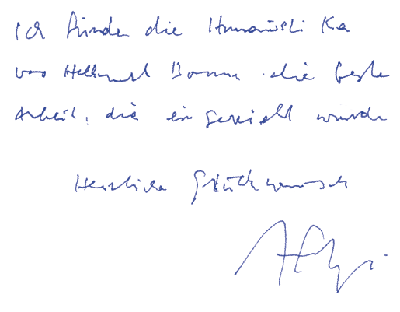 Ich finden die Humanistika
von Hellmut Bomm die beste
Arbeit, die eingereicht wurde
Herzlichen Glückwunsch